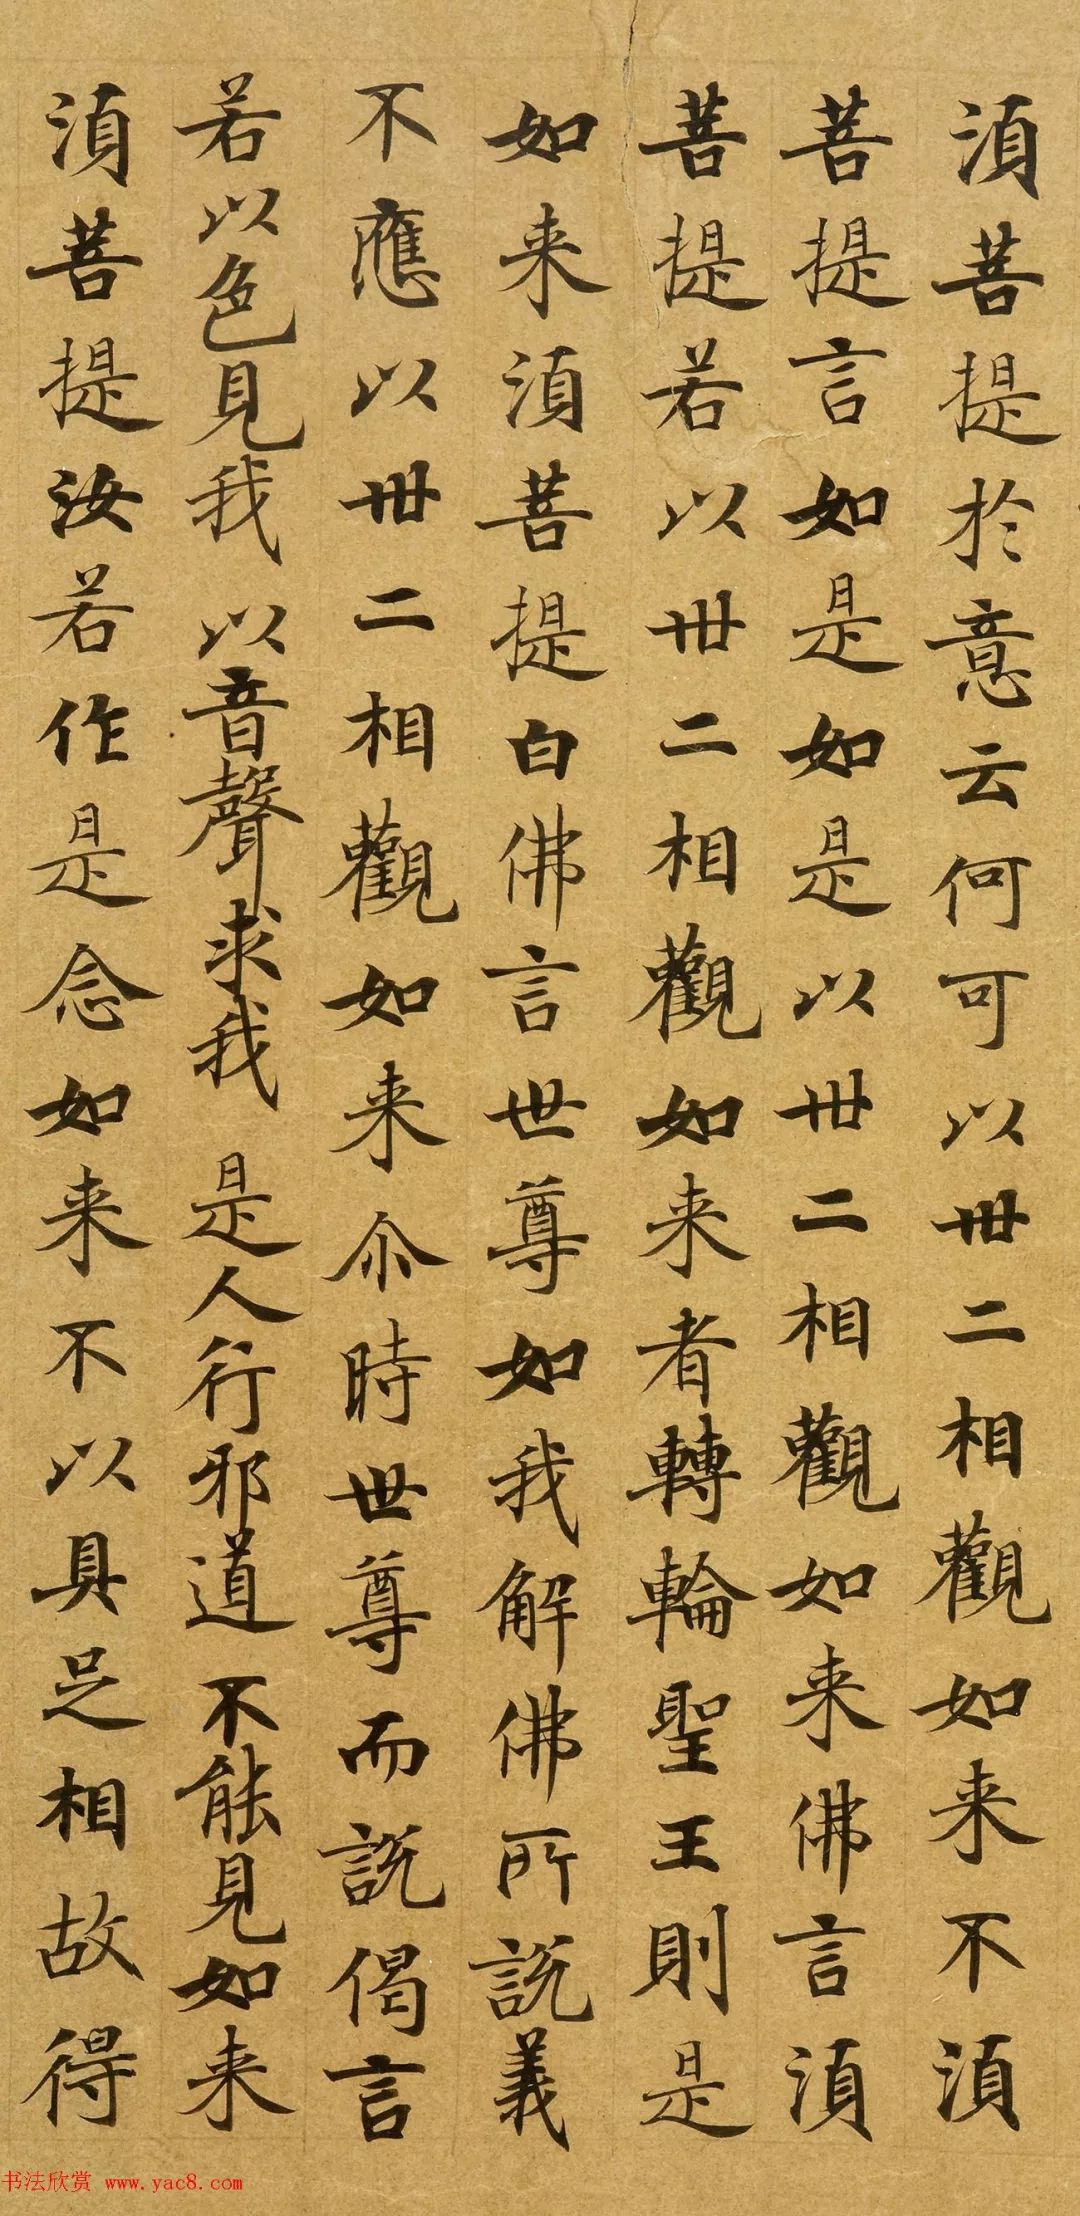 湏菩提於意云何可以卅二相觀如来不湏
菩提言如是如是以卅二相觀如来佛言湏
菩提若以卅二相觀如来者轉輪聖王則是
如来湏菩提白佛言世尊如我解佛所說義
不應以卅二相觀如来尒時世尊而說偈言
若以色見我 以音聲求我 是人行邪道 不能見如来
湏菩提汝若作是念如来不以具足相故得
书法欣赏 www.yac8.com